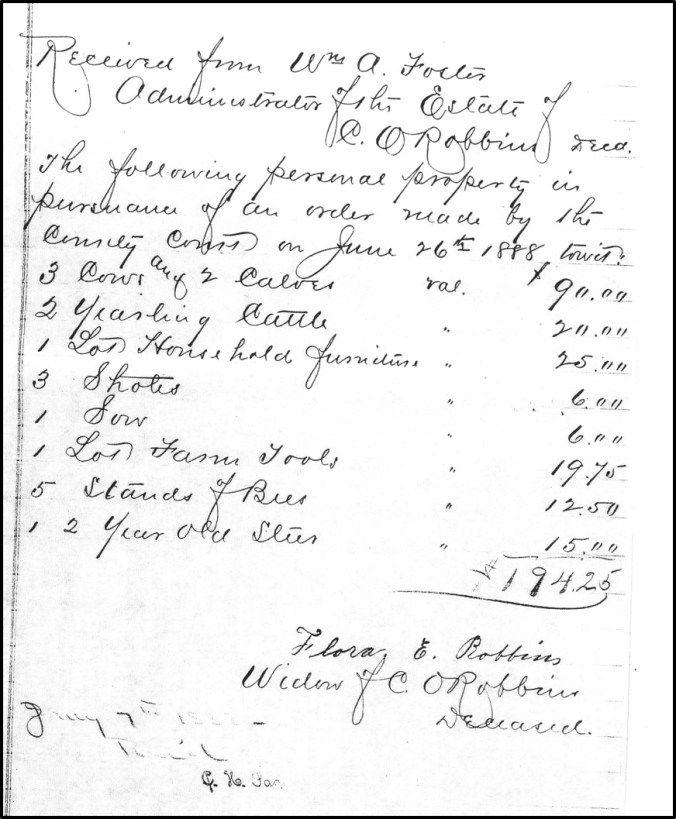 Received from Wm A. Foster
Administrator of the Estate of
C. O Robbins Decd.
The following personal property in
pursuance of an order made by the
County Court on June 26th 1888 towit:
3 Cows and 2 Calves val. $90.00
2 Yearling Cattle " 20.00
1 Lot Household furniture " 25.00
3 Shotes " 6.00
1 Sow " 6.00
1 Lot Farm Tools " 19.75
5 Stands of Bees " 12.50
1 2 Year Old Steer " 15.00
$194.25
Flora E. Robbins
Widow of C. O Robbins
Deceased.
7th